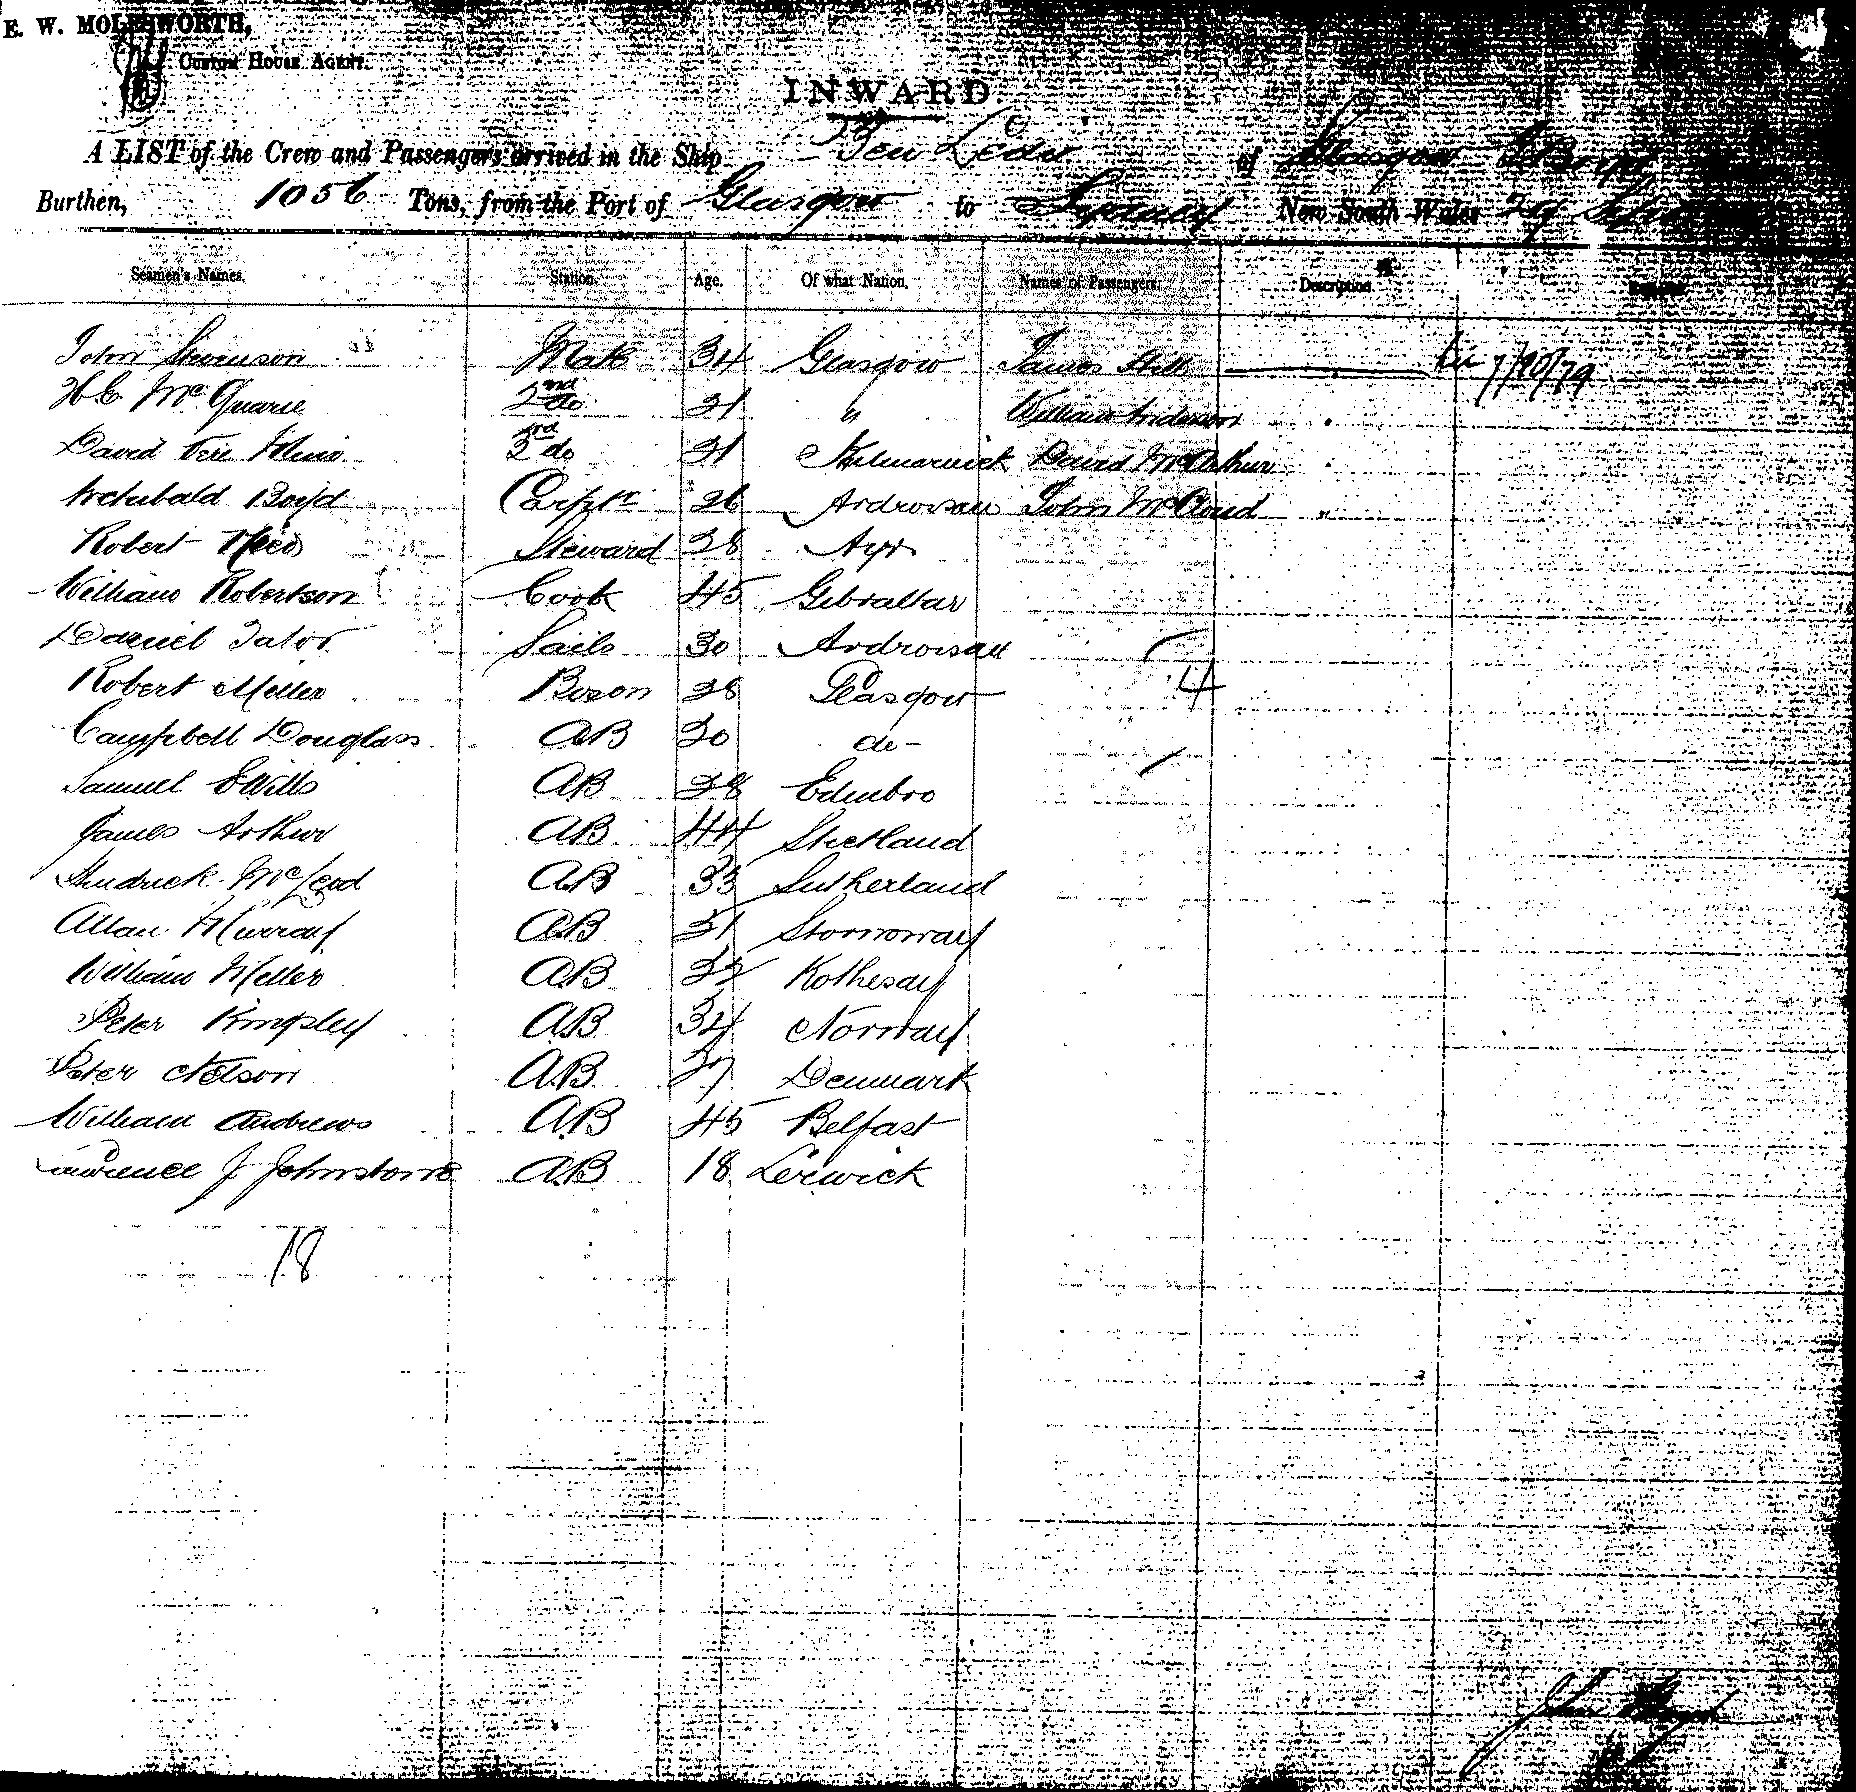 E. W. MOLESWORTH,
Custom House Agent.
INWARD.
A LIST of the Crew and Passengers arrived in the Ship Ben Ledi of Glasgow J Boyd
Burthen, 1056 Tons, from the Port of Glasgow to Sydney New South Wales 29
Seamen's Names. Station. Age. Of what Nation. Names of Passengers. Description
John Stevenson Mate 34 Glasgow James 7/10/79
McQuarie 2nd do 21 " William Anderson "
David 3rd do 21 Kilmarnick David McArthur "
Archibald Boyd Carptr 26 Ardrossan John McCloud "
Robert Steward 28 Ayr
William Robertson Cook 45 Gibraltar
Daniel Tator Sails 30 Ardrossan
Robert Meller Boson 28 Glasgow 4
Campbell Douglass AB 30 do -
Samuel AB 28 Edinbro
James Arthur AB 44 Shetland
Hendrick McLeod AB 33 Sutherland
Allan Murray AB 31 Stornoway
William Meller AB Rothesay
Peter Kingsley AB 34 Norway
Peter Nelson AB Denmark
William Andrews AB 45 Belfast
Lawrence J Johnstone AB 18 Lerwick
18
John Boyd